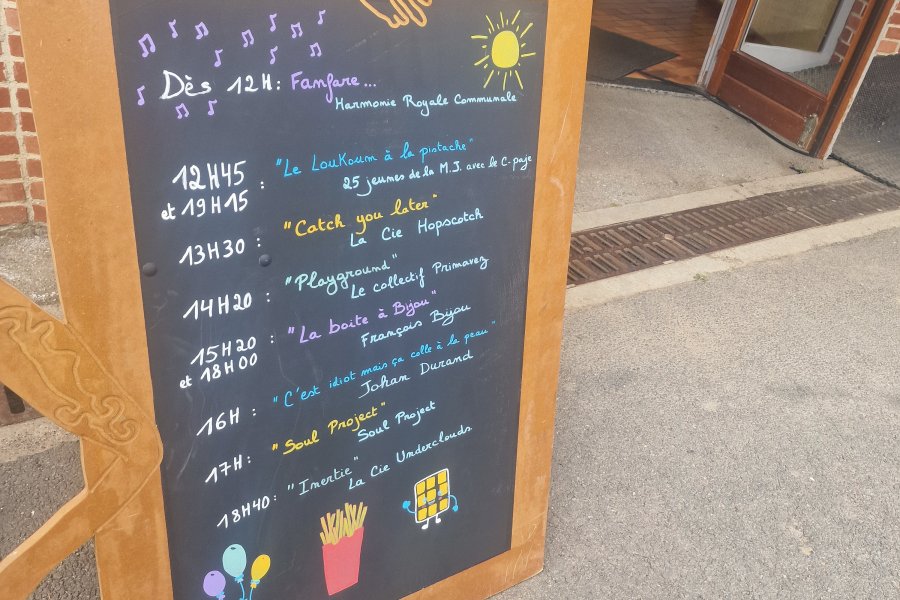 Dès 12H: Fanfare...
Harmonie Royale Communale
12H45 et 19H15 : "Le Loukoum à la pistache"
25 jeunes de la M.J. avec le C-paje
13H30 : "Catch you later"
La Cie Hopscotch
14H20 : "Playground"
Le collectif Primavez
15H20 et 18H00 : "La boite à Bijou"
François Bijou
16H : "C'est idiot mais ça colle à la peau"
Johan Durand
17H : "Soul Project"
Soul Project
18H40 : "Inertie"
La Cie Underclouds